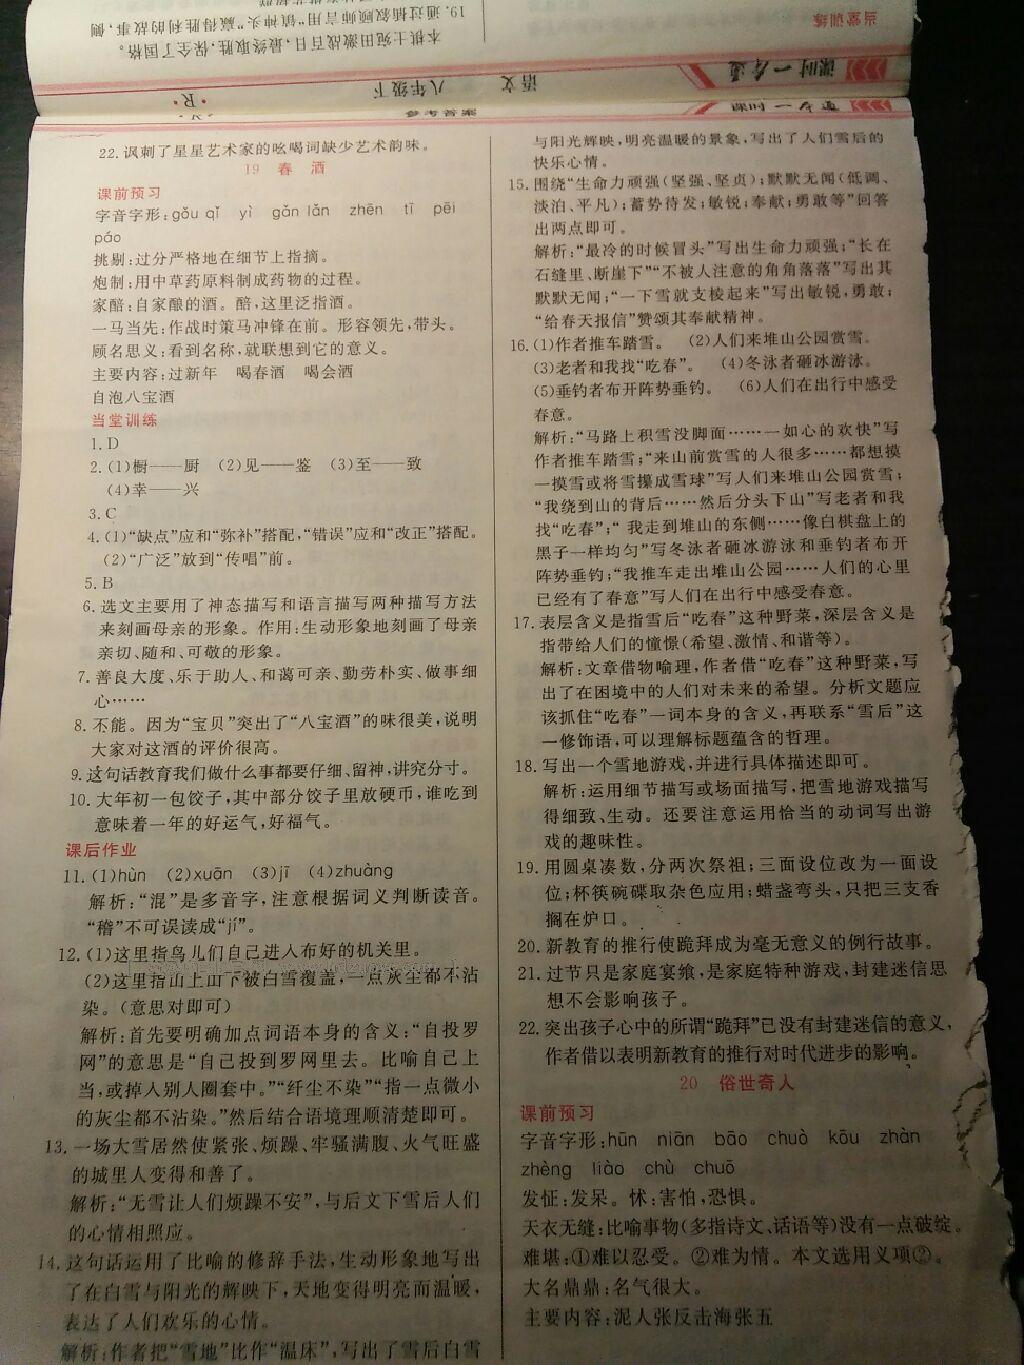 19. 通过插叙顾师言用“镇神头”赢得胜利的故事,侧
本棋士宛田激战百日,最终取胜,保全了国格。
当堂训练
课时一本通
语文 八年级下 ·R·
参考答案
22. 讽刺了星星艺术家的吆喝词缺少艺术韵味。
19 春 酒
课前预习
字音字形:gǒu qǐ yì gǎn lǎn zhēn tī pēi
páo
挑剔:过分严格地在细节上指摘。
炮制:用中草药原料制成药物的过程。
家醅:自家酿的酒。醅,这里泛指酒。
一马当先:作战时策马冲锋在前。形容领先,带头。
顾名思义:看到名称,就联想到它的意义。
主要内容:过新年 喝春酒 喝会酒
自泡八宝酒
当堂训练
1. D
2. (1)橱——厨 (2)见——鉴 (3)至——致
(4)幸——兴
3. C
4. (1)“缺点”应和“弥补”搭配,“错误”应和“改正”搭配。
(2)“广泛”放到“传唱”前。
5. B
6. 选文主要用了神态描写和语言描写两种描写方法
来刻画母亲的形象。作用:生动形象地刻画了母亲
亲切、随和、可敬的形象。
7. 善良大度、乐于助人、和蔼可亲、勤劳朴实、做事细
心……
8. 不能。因为“宝贝”突出了“八宝酒”的味很美,说明
大家对这酒的评价很高。
9. 这句话教育我们做什么事都要仔细、留神,讲究分寸。
10. 大年初一包饺子,其中部分饺子里放硬币,谁吃到
意味着一年的好运气,好福气。
课后作业
11. (1)hùn (2)xuān (3)jī (4)zhuàng
解析:“混”是多音字,注意根据词义判断读音。
“稽”不可误读成“jí”。
12. (1)这里指鸟儿们自己进入布好的机关里。
(2)这里指山上山下被白雪覆盖,一点灰尘都不沾
染。(意思对即可)
解析:首先要明确加点词语本身的含义:“自投罗
网”的意思是“自己投到罗网里去。比喻自己上
当,或掉入别人圈套中。”“纤尘不染”“指一点微小
的灰尘都不沾染。”然后结合语境理顺清楚即可。
13. 一场大雪居然使紧张、烦躁、牢骚满腹、火气旺盛
的城里人变得和善了。
解析:“无雪让人们烦躁不安”,与后文下雪后人们
的心情相照应。
14. 这句话运用了比喻的修辞手法,生动形象地写出
了在白雪与阳光的辉映下,天地变得明亮而温暖,
表达了人们欢乐的心情。
解析:作者把“雪地”比作“温床”,写出了雪后白雪
与阳光辉映,明亮温暖的景象,写出了人们雪后的
快乐心情。
15. 围绕“生命力顽强(坚强、坚贞);默默无闻(低调、
淡泊、平凡);蓄势待发;敏锐;奉献;勇敢等”回答
出两点即可。
解析:“最冷的时候冒头”写出生命力顽强;“长在
石缝里、断崖下”“不被人注意的角角落落”写出其
默默无闻;“一下雪就支棱起来”写出敏锐,勇敢;
“给春天报信”赞颂其奉献精神。
16. (1)作者推车踏雪。 (2)人们来堆山公园赏雪。
(3)老者和我找“吃春”。 (4)冬泳者砸冰游泳。
(5)垂钓者布开阵势垂钓。 (6)人们在出行中感受
春意。
解析:“马路上积雪没脚面……一如心的欢快”写
作者推车踏雪;“来山前赏雪的人很多……都想摸
一摸雪或将雪攥成雪球”写人们来堆山公园赏雪;
“我绕到山的背后……然后分头下山”写老者和我
找“吃春”;“我走到堆山的东侧……像白棋盘上的
黑子一样均匀”写冬泳者砸冰游泳和垂钓者布开
阵势垂钓;“我推车走出堆山公园……人们的心里
已经有了春意”写人们在出行中感受春意。
17. 表层含义是指雪后“吃春”这种野菜,深层含义是
指带给人们的憧憬(希望、激情、和谐等)。
解析:文章借物喻理,作者借“吃春”这种野菜,写
出了在困境中的人们对未来的希望。分析文题应
该抓住“吃春”一词本身的含义,再联系“雪后”这
一修饰语,可以理解标题蕴含的哲理。
18. 写出一个雪地游戏,并进行具体描述即可。
解析:运用细节描写或场面描写,把雪地游戏描写
得细致、生动。还要注意运用恰当的动词写出游
戏的趣味性。
19. 用圆桌凑数,分两次祭祖;三面设位改为一面设
位;杯筷碗碟取杂色应用;蜡盏弯头,只把三支香
搁在炉口。
20. 新教育的推行使跪拜成为毫无意义的例行故事。
21. 过节只是家庭宴飨,是家庭特种游戏,封建迷信思
想不会影响孩子。
22. 突出孩子心中的所谓“跪拜”已没有封建迷信的意义,
作者借以表明新教育的推行对时代进步的影响。
20 俗世奇人
课前预习
字音字形:hūn niān bāo chuò kōu zhàn
zhèng liào chù chuō
发怔:发呆。怵:害怕,恐惧。
天衣无缝:比喻事物(多指诗文、话语等)没有一点破绽。
难堪:①难以忍受。②难为情。本文选用义项②。
大名鼎鼎:名气很大。
主要内容:泥人张反击海张五